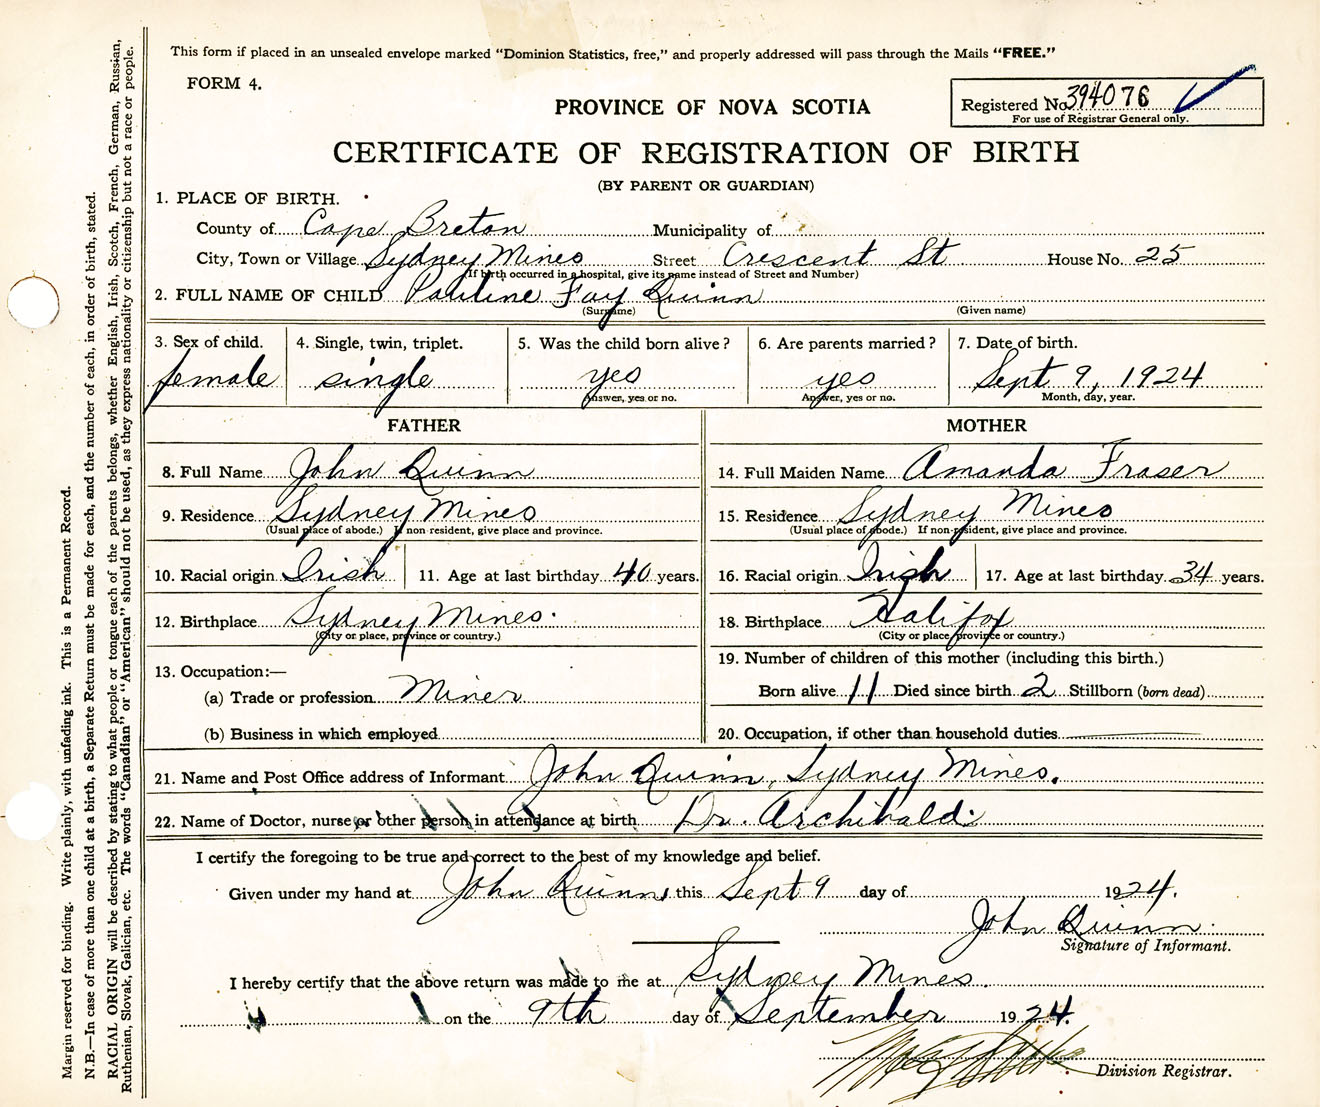 This form if placed in an unsealed envelope marked “Dominion Statistics, free,” and properly addressed will pass through the Mails “FREE.”
FORM 4.
Registered No. 394076
For use of Registrar General only.
PROVINCE OF NOVA SCOTIA
CERTIFICATE OF REGISTRATION OF BIRTH
(BY PARENT OR GUARDIAN)
1. PLACE OF BIRTH.
County of Cape Breton Municipality of
City, Town or Village Sydney Mines Street Crescent St House No. 25
(If birth occurred in a hospital, give its name instead of Street and Number)
2. FULL NAME OF CHILD Pauline Fay Quinn
(Surname) (Given name)
3. Sex of child. 4. Single, twin, triplet. 5. Was the child born alive? 6. Are parents married? 7. Date of birth.
female single yes yes Sept 9, 1924
Answer, yes or no. Answer, yes or no. Month, day, year.
FATHER
8. Full Name John Quinn
9. Residence Sydney Mines
(Usual place of abode.) If non-resident, give place and province.
10. Racial origin Irish 11. Age at last birthday 40 years.
12. Birthplace Sydney Mines.
(City or place, province or country.)
13. Occupation:—
(a) Trade or profession Miner
(b) Business in which employed
MOTHER
14. Full Maiden Name Amanda Fraser
15. Residence Sydney Mines
(Usual place of abode.) If non-resident, give place and province.
16. Racial origin Irish 17. Age at last birthday 34 years.
18. Birthplace Halifax
(City or place, province or country.)
19. Number of children of this mother (including this birth.)
Born alive 11 Died since birth 2 Stillborn (born dead)
20. Occupation, if other than household duties
21. Name and Post Office address of Informant John Quinn, Sydney Mines.
22. Name of Doctor, nurse or other person in attendance at birth Dr. Archibald.
I certify the foregoing to be true and correct to the best of my knowledge and belief.
Given under my hand at John Quinn, this Sept 9 day of 1924.
John Quinn.
Signature of Informant.
I hereby certify that the above return was made to me at Sydney Mines.
on the 9th day of September 1924.
Division Registrar.
Margin reserved for binding. Write plainly, with unfading ink. This is a Permanent Record.
N.B.—In case of more than one child at a birth, a Separate Return must be made for each, and the number of each, in order of birth, stated.
RACIAL ORIGIN will be described by stating to what people or tongue each of the parents belongs, whether English, Irish, Scotch, French, German, Russian,
Ruthenian, Slovak, Galician, etc. The words “Canadian” or “American” should not be used, as they express nationality or citizenship but not a race or people.